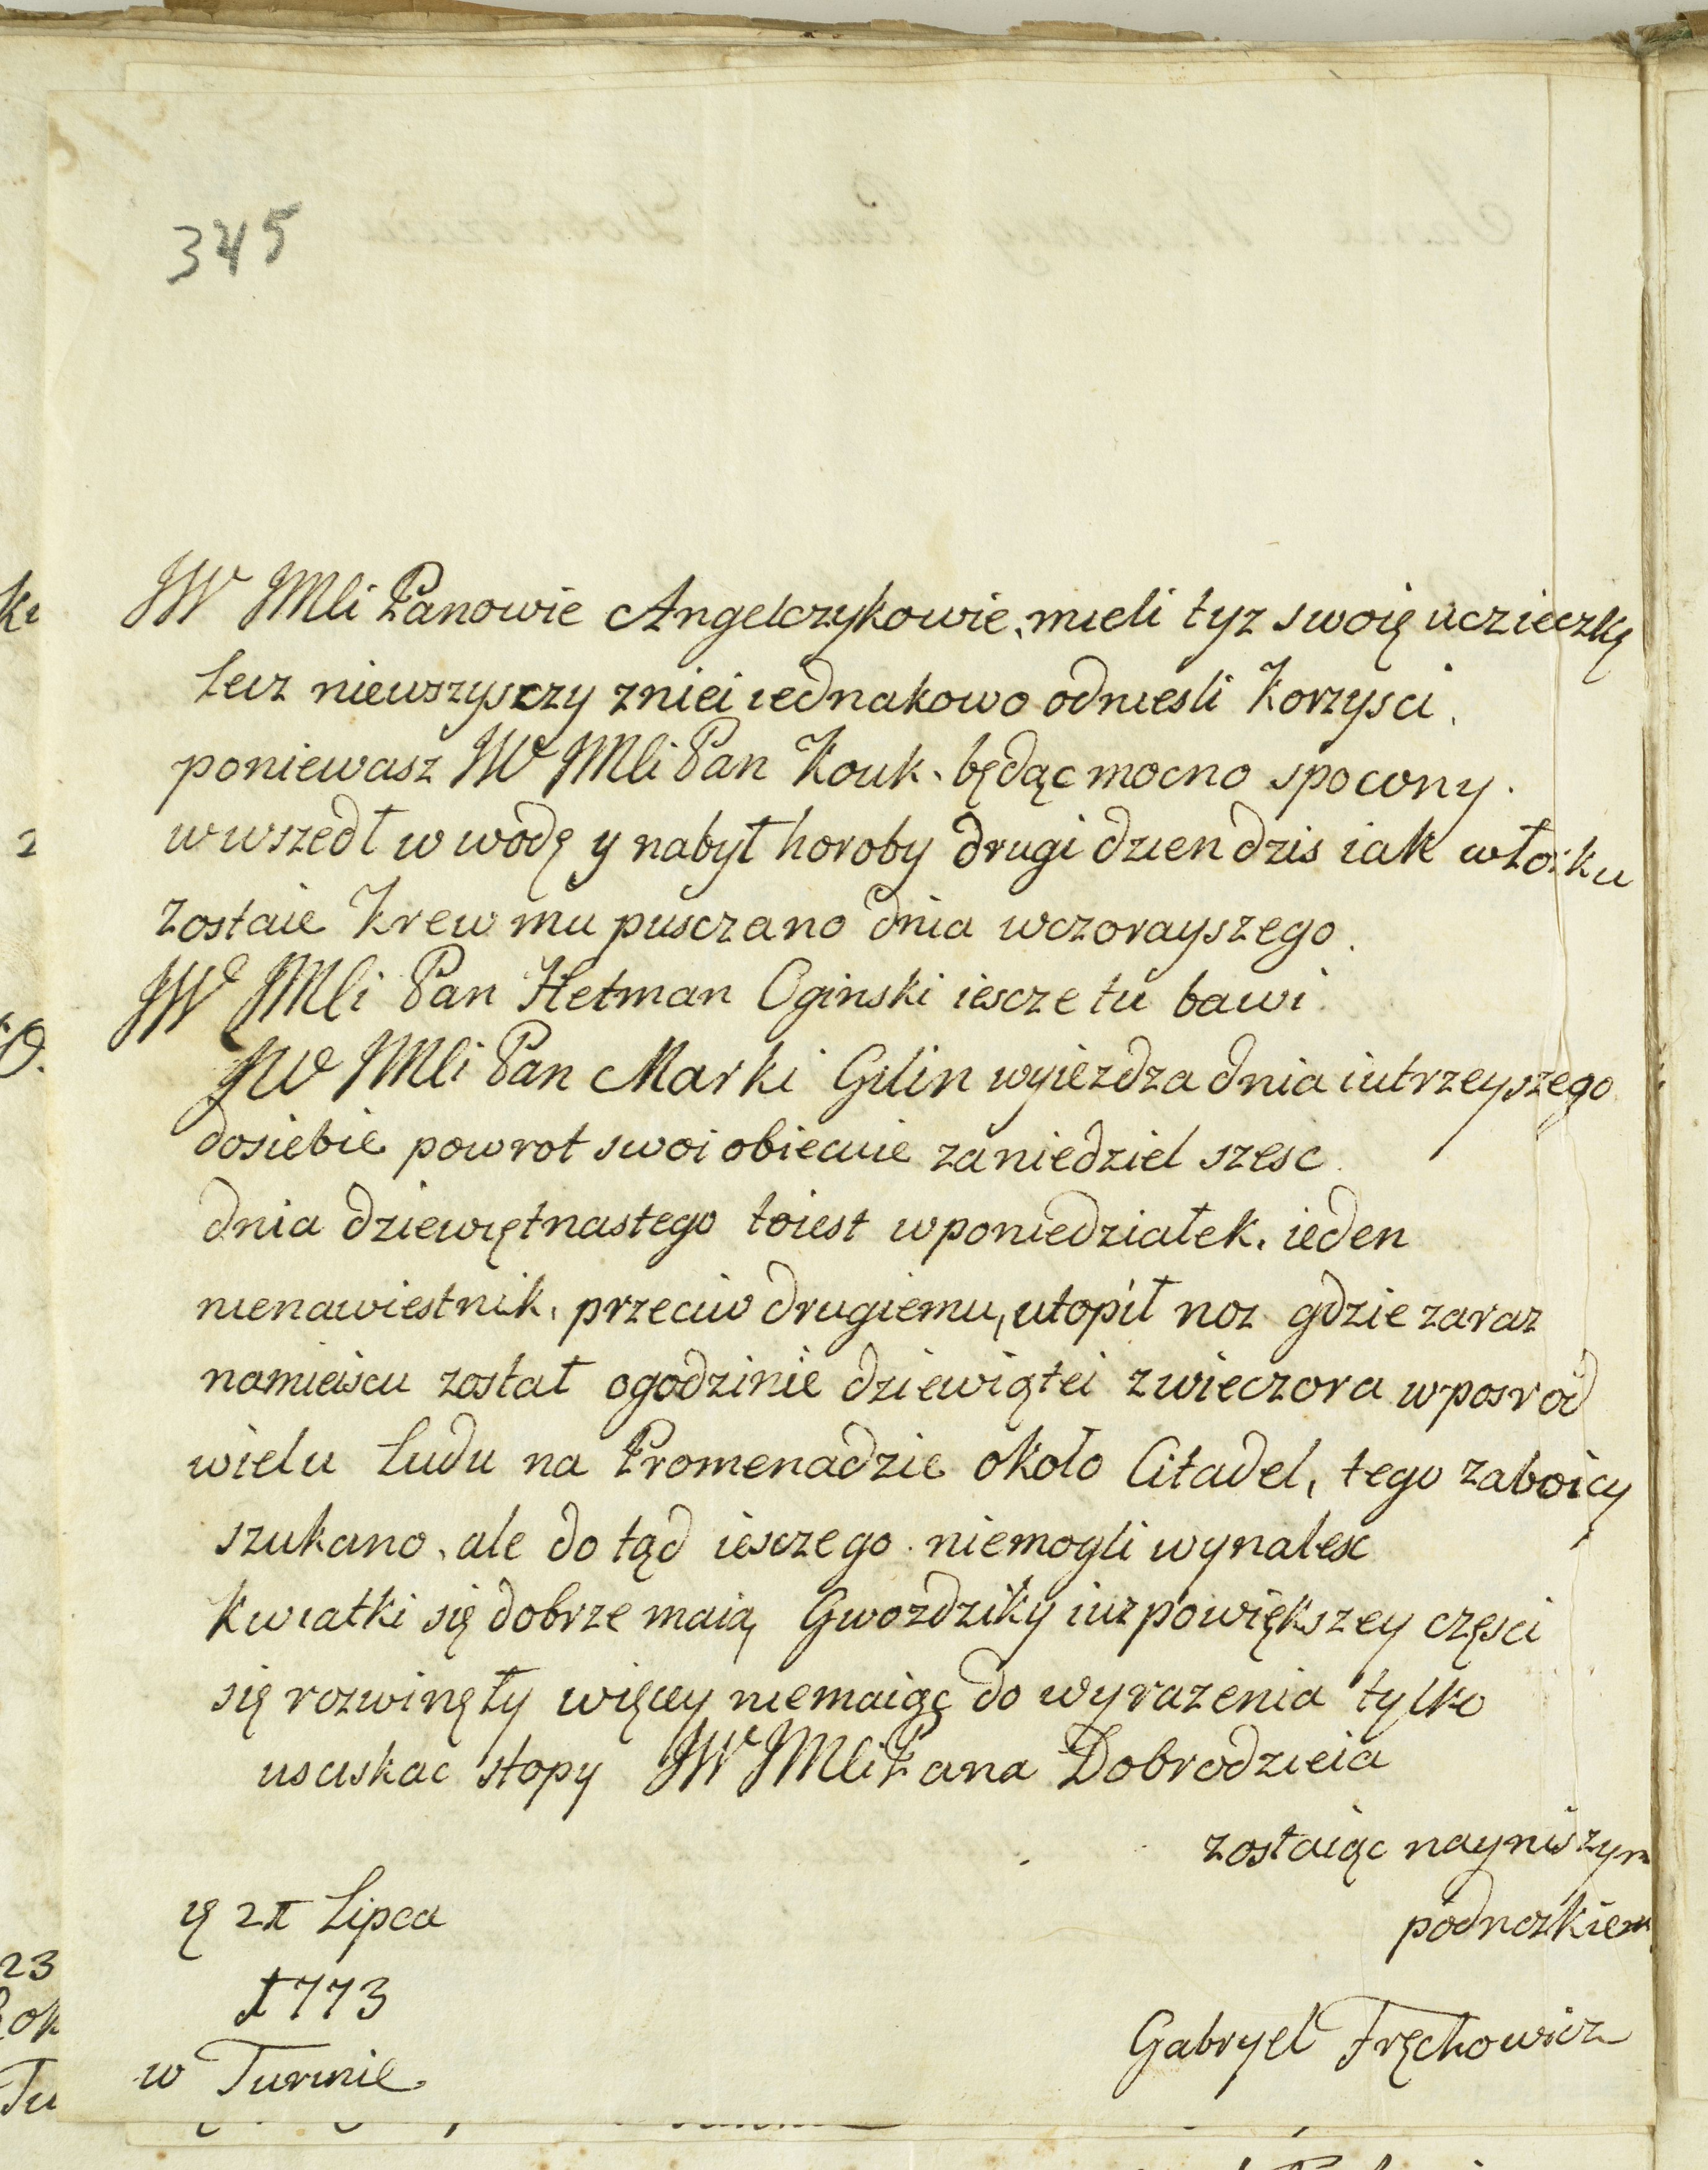 345
JW JMli Panowie Angelczykowie, mieli tyz swoię uczieczkę
Lecz niewszysczy zniei iednakowo odniesli Korzysci.
poniewasz JW JMli Pan Kouk. będąc mocno spocony.
wwszedł w wodę y nabył horoby drugi dzien dzis iak włoiku
zostaie Krew mu pusczano dnia wczorayszego.
JW JMli Pan Hetman Oginski iescze tu bawi.
JW JMli Pan Marki Gilin wyiezdza dnia iutrzeyszego
dosiebie powrot swoi obiecuie zaniedziel szesc.
dnia dziewiętnastego toiest wponiedziałek. ieden
nienawiestnik. przeciw drugiemu, utopił noz gdzie zaraz
namieiscu został ogodzinie dziewiątei zwieczora wposrod
wielu Ludu na Promenadzie około Citadel, tego zaboicy
szukano, ale do tąd iesczego niemogli wynalesc
Kwiatki się dobrze maią, Gwozdziky iuz powiększey częsci
się rozwinęły więcy niemaiąc do wyrazenia tylko
usciskac stopy JW JMli Pana Dobrodzieia
zostaiąc nayniszym
podnozkiem
21 Lipca
1773
w Turinie.
Gabryel Fręchowicz